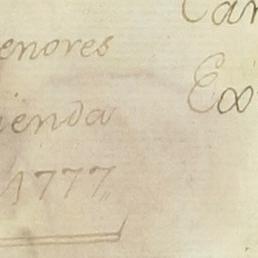 enores
ienda
1777
Can
Ex